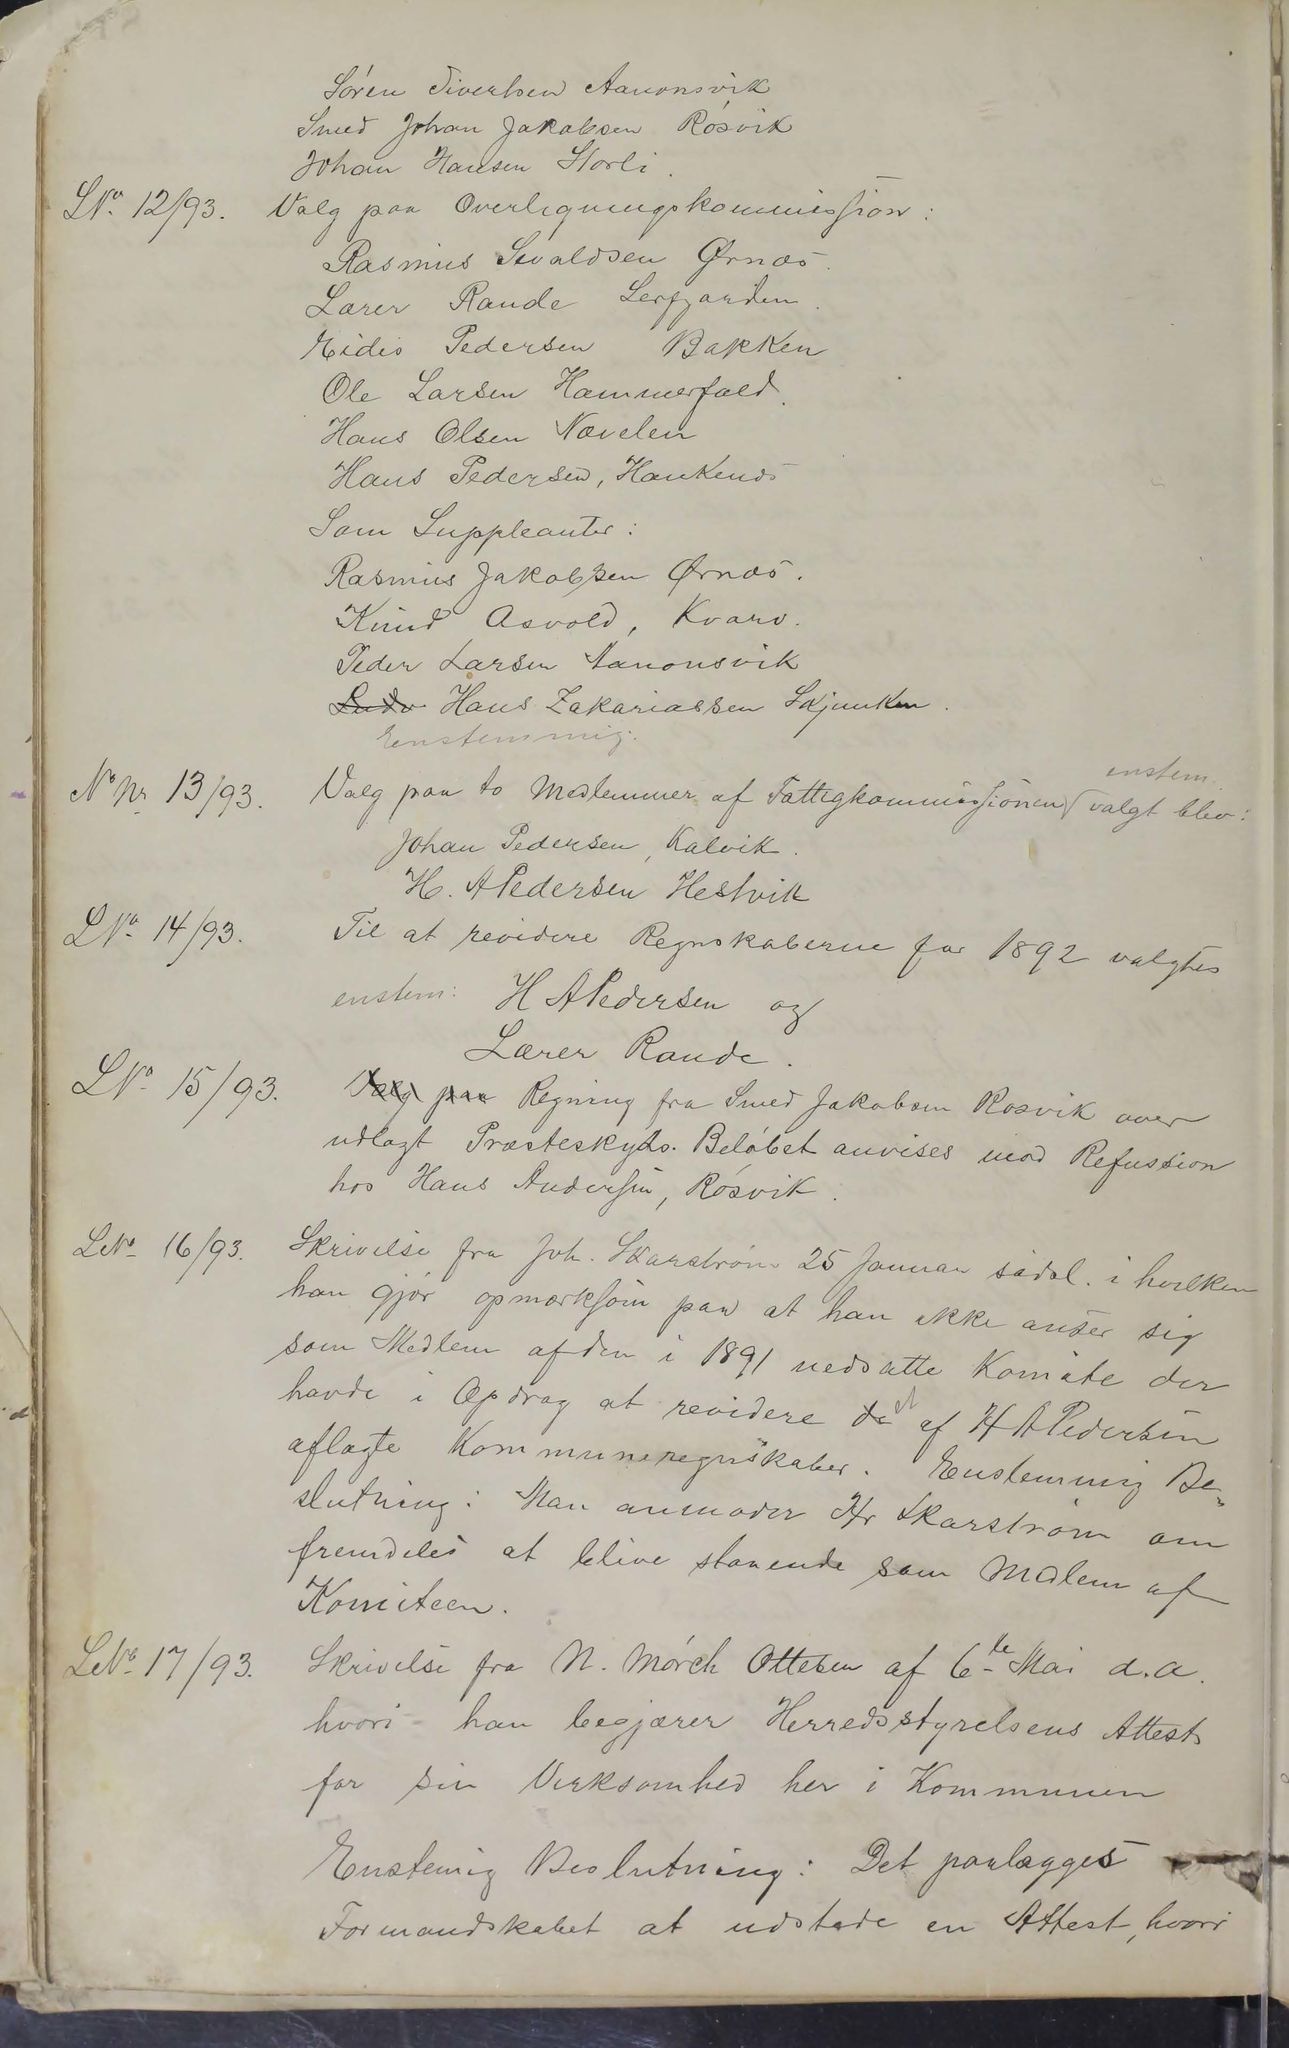 Sören Sivertsen Aanonsvik
Smed Johan Jakobsen Rósvik
Johan Hansen Storli.
LNo 12/93. Valg paa Overligningskommission:
Rasmus Sivaldsen Ørnæs.
Lærer Rande Leifjorden.
Eidis Pedersen Bakken
Ole Larsen Hammerfald.
Hans Olsen Nævelen
Hans Pedersen, Haukenæs
Som Suppleanter:
Rasmus Jakobsen Ørnæs.
Knud Asvold, Kvarv.
Peder Larsen Aanonsvik
Ludv Hans Zakariassen Skjunken.
Eenstemmig.
No Nr 13/93. Valg paa to Medlemmer af Fattigkommissionen enstem. valgt blev:
Johan Pedersen, Kalvik.
H. A Pedersen Hestvik
LNo 14/93. Til at revidere Regnskaberne for 1892 valgtes
enstem: H A Pedersen og
Lærer Rande.
LNo 15/93. Valg paa Regning fra Smed Jakobsen Rosvik over
udlagt Præsteskyds. Belóbet anvises mod Refussion
hos Hans Andersen, Rósvik.
LNo 16/93. Skrivelse fra Joh. Skarstrøm 25 Januar sidstl. i hvilken
han gjór opmærksom paa at han ikke anser sig
som Medlem af den i 1891 nedsatte Komite der
havde i Opdrag at revidere de af H A Pedersen
aflagte Kommuneregnskaber. Enstemmig Be-
slutning: Man anmoder Hr Skarstrøm om
fremdeles at blive staaende som Medlem af
Komiteen.
LNo 17/93. Skrivelse fra N. Mórch Ottesen af 6te Mai d.a.
hvori han begjærer Herredsstyrelsens Attest
for sin Virksomhed her i Kommunen
Enstemig Beslutning: Det paalægges
Formandskabet at udstede en Attest, hvori